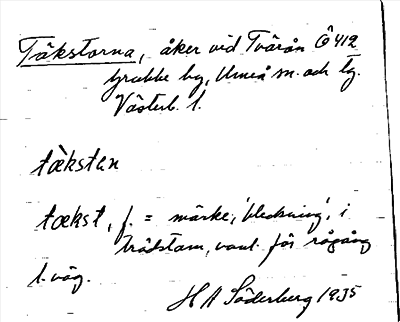 Täkstorna, åker vid Tvärån Ö 412
Grubbe by, Umeå sn. och tg.
Västerb. l.
tä̀kstan
tækst, f. = märke, 'bleckning', i
trädstam, vanl. för rågång
l. väg.
H A Söderberg 1935